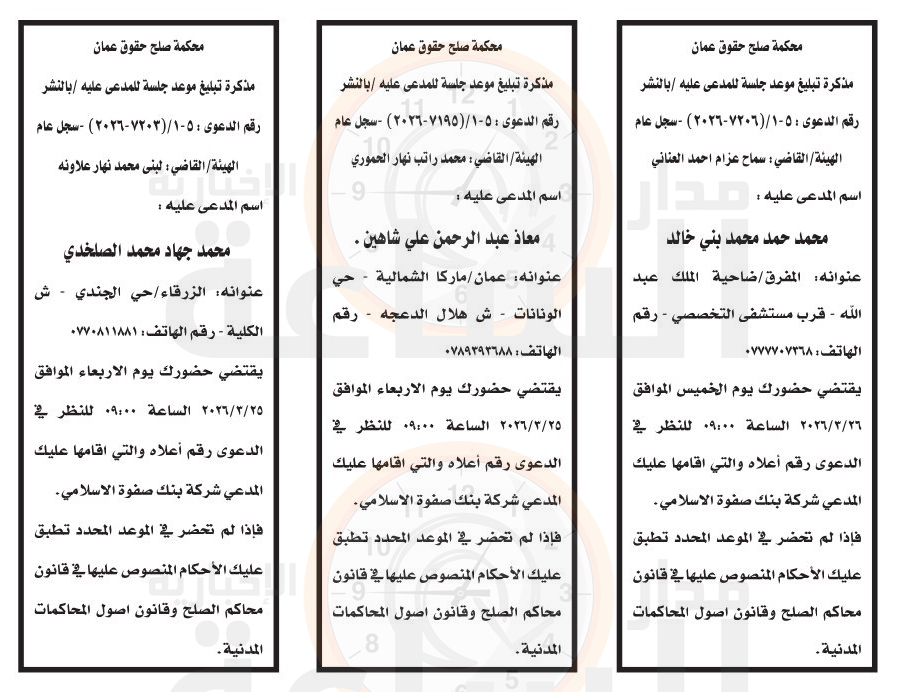 محكمة صلح حقوق عمان
مذكرة تبليغ موعد جلسة للمدعى عليه /بالنشر
رقم الدعوى : ٥-١/(٧٢٠٦-٢٠٢٦) -سجل عام
الهيئة/القاضي: سماح عزام احمد العناني
اسم المدعى عليه :
محمد حمد محمد بني خالد
عنوانه: المفرق/ضاحية الملك عبد
الله - قرب مستشفى التخصصي - رقم
الهاتف: ٠٧٧٧٧٠٧٣٦٨
يقتضي حضورك يوم الخميس الموافق
٢٠٢٦/٣/٢٦ الساعة ٠٩:٠٠ للنظر في
الدعوى رقم أعلاه والتي اقامها عليك
المدعي شركة بنك صفوة الاسلامي.
فإذا لم تحضر في الموعد المحدد تطبق
عليك الأحكام المنصوص عليها في قانون
محاكم الصلح وقانون اصول المحاكمات
المدنية.
محكمة صلح حقوق عمان
مذكرة تبليغ موعد جلسة للمدعى عليه /بالنشر
رقم الدعوى : ٥-١/(٧١٩٥-٢٠٢٦) -سجل عام
الهيئة/القاضي: محمد راتب نهار الحموري
اسم المدعى عليه :
معاذ عبد الرحمن علي شاهين .
عنوانه: عمان/ماركا الشمالية - حي
الونانات - ش هلال الدعجه - رقم
الهاتف: ٠٧٨٩٣٩٣٦٨٨
يقتضي حضورك يوم الاربعاء الموافق
٢٠٢٦/٣/٢٥ الساعة ٠٩:٠٠ للنظر في
الدعوى رقم أعلاه والتي اقامها عليك
المدعي شركة بنك صفوة الاسلامي.
فإذا لم تحضر في الموعد المحدد تطبق
عليك الأحكام المنصوص عليها في قانون
محاكم الصلح وقانون اصول المحاكمات
المدنية.
محكمة صلح حقوق عمان
مذكرة تبليغ موعد جلسة للمدعى عليه /بالنشر
رقم الدعوى : ٥-١/(٧٢٠٣-٢٠٢٦) -سجل عام
الهيئة/القاضي: لبنى محمد نهار علاونه
اسم المدعى عليه :
محمد جهاد محمد الصلخدي
عنوانه: الزرقاء/حي الجندي - ش
الكلية - رقم الهاتف: ٠٧٧٠٨١١٨٨١
يقتضي حضورك يوم الاربعاء الموافق
٢٠٢٦/٣/٢٥ الساعة ٠٩:٠٠ للنظر في
الدعوى رقم أعلاه والتي اقامها عليك
المدعي شركة بنك صفوة الاسلامي.
فإذا لم تحضر في الموعد المحدد تطبق
عليك الأحكام المنصوص عليها في قانون
محاكم الصلح وقانون اصول المحاكمات
المدنية.
مدار الساعة الإخبارية
مدار الساعة الإخبارية